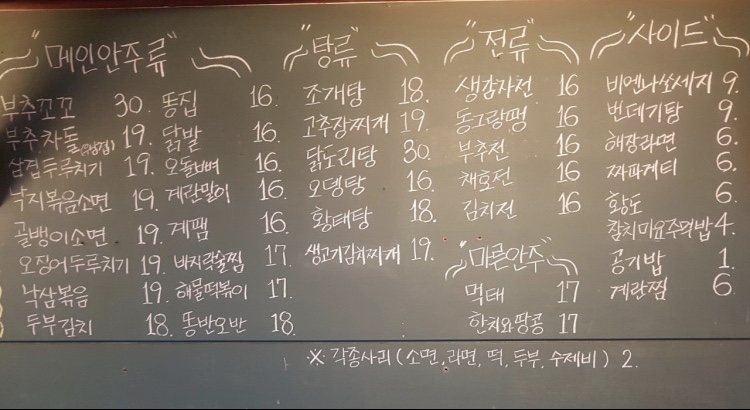 "메인안주류"
부추꼬꼬 30.
부추차돌 19.
삼겹두루치기 19.
낙지볶음소면 19.
골뱅이소면 19.
오징어두루치기 19.
낙삼볶음 19.
두부김치 18.
똥집 16.
닭발 16.
오돌뼈 16.
계란말이 16.
계팸 16.
바지락술찜 17.
해물떡볶이 17.
똥반오반 18.
"탕류"
조개탕 18.
고추장찌개 19.
닭도리탕 30.
오뎅탕 16.
황태탕 18.
생고기김치찌개 19.
"전류"
생감자전 16
동그랑땡 16
부추전 16
채호전 16
김치전 16
"마른안주"
먹태 17
한치와땅콩 17
"사이드"
비엔나쏘세지 9.
번데기탕 9.
해장라면 6.
짜파게티 6.
황도 6.
참치마요주먹밥 4.
공기밥 1.
계란찜 6.
※ 각종사리 (소면, 라면, 떡, 두부, 수제비) 2.